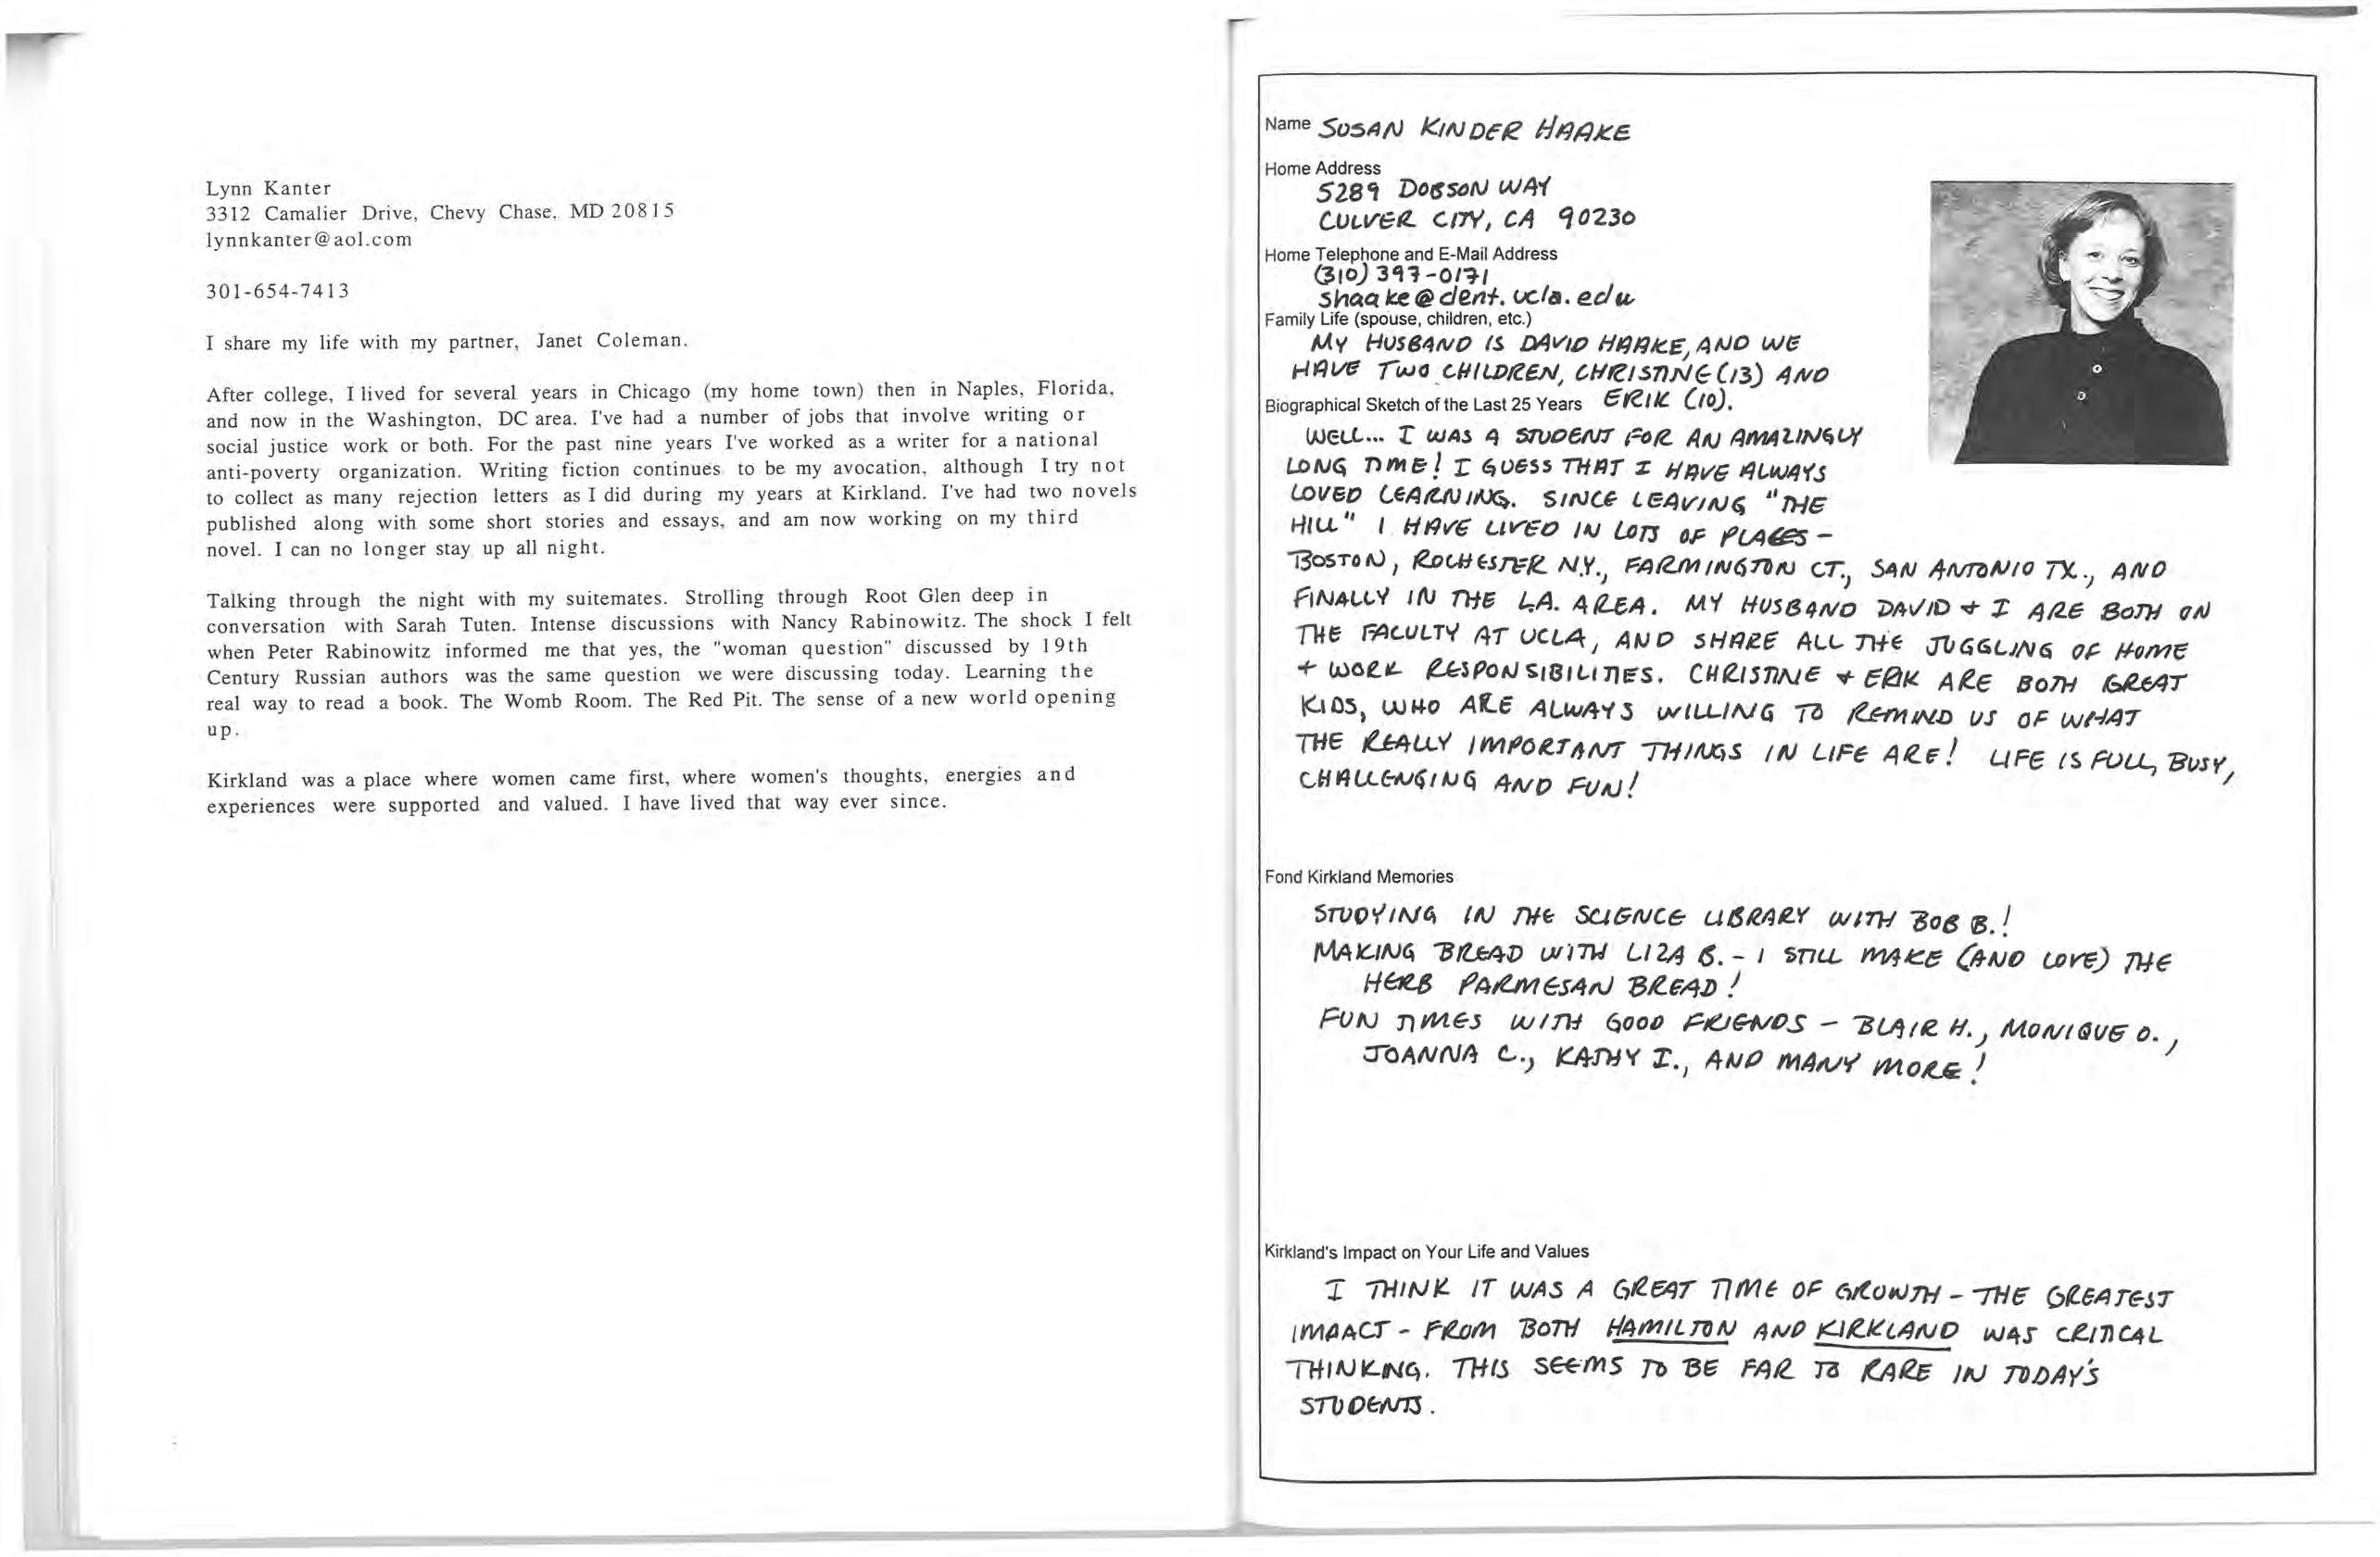 Lynn Kanter
3312 Camalier Drive, Chevy Chase, MD 20815
lynnkanter@aol.com
301-654-7413
I share my life with my partner, Janet Coleman.
After college, I lived for several years in Chicago (my home town) then in Naples, Florida,
and now in the Washington, DC area. I've had a number of jobs that involve writing or
social justice work or both. For the past nine years I've worked as a writer for a national
anti-poverty organization. Writing fiction continues to be my avocation, although I try not
to collect as many rejection letters as I did during my years at Kirkland. I've had two novels
published along with some short stories and essays, and am now working on my third
novel. I can no longer stay up all night.
Talking through the night with my suitemates. Strolling through Root Glen deep in
conversation with Sarah Tuten. Intense discussions with Nancy Rabinowitz. The shock I felt
when Peter Rabinowitz informed me that yes, the "woman question" discussed by 19th
Century Russian authors was the same question we were discussing today. Learning the
real way to read a book. The Womb Room. The Red Pit. The sense of a new world opening
up.
Kirkland was a place where women came first, where women's thoughts, energies and
experiences were supported and valued. I have lived that way ever since.
Name SUSAN KINDER HAAKE
Home Address
5289 DOBSON WAY
CULVER CITY, CA 90230
Home Telephone and E-Mail Address
(310) 397-0171
shaake@dent.ucla.edu
Family Life (spouse, children, etc.)
MY HUSBAND IS DAVID HAAKE, AND WE
HAVE TWO CHILDREN, CHRISTINE (13) AND
Biographical Sketch of the Last 25 Years ERIK (10).
WELL... I WAS A STUDENT FOR AN AMAZINGLY
LONG TIME! I GUESS THAT I HAVE ALWAYS
LOVED LEARNING. SINCE LEAVING "THE
HILL" I HAVE LIVED IN LOTS OF PLACES -
BOSTON, ROCHESTER N.Y., FARMINGTON CT., SAN ANTONIO TX., AND
FINALLY IN THE L.A. AREA. MY HUSBAND DAVID + I ARE BOTH ON
THE FACULTY AT UCLA, AND SHARE ALL THE JUGGLING OF HOME
+ WORK RESPONSIBILITIES. CHRISTINE + ERIK ARE BOTH GREAT
KIDS, WHO ARE ALWAYS WILLING TO REMIND US OF WHAT
THE REALLY IMPORTANT THINGS IN LIFE ARE! LIFE IS FULL, BUSY,
CHALLENGING AND FUN!
Fond Kirkland Memories
STUDYING IN THE SCIENCE LIBRARY WITH BOB B.!
MAKING BREAD WITH LIZA B. - I STILL MAKE (AND LOVE) THE
HERB PARMESAN BREAD!
FUN TIMES WITH GOOD FRIENDS - BLAIR H., MONIQUE O.,
JOANNA C., KATHY I., AND MANY MORE!
Kirkland's Impact on Your Life and Values
I THINK IT WAS A GREAT TIME OF GROWTH - THE GREATEST
IMPACT - FROM BOTH HAMILTON AND KIRKLAND WAS CRITICAL
THINKING. THIS SEEMS TO BE FAR TO RARE IN TODAY'S
STUDENTS.